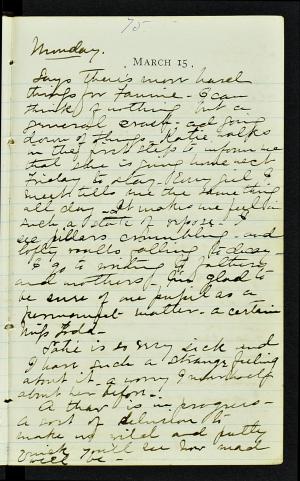 75
Monday.
MARCH 15.
Says there's more hard
things for Fannie - I can
think of nothing but a
general crash - and going
down of things. Katie walks
in the front steps to inform me
that she is going home next
Friday to stay. Every girl I
meet tells me the same thing
all day - It makes me feel in
such a state of . I
see pillars crumbling - and
lofty walls falling to
I go to writing to fathers
and mothers - I'm glad to
be sure of one pupil as a
permanent matter - a certain
Miss
Katie is so very sick and
I have such a strange feeling
about it - a worry I never felt
about her before -
A thaw is in progress -
a sort of delusion to
make us wild and
You'll see how mad
we'll be -